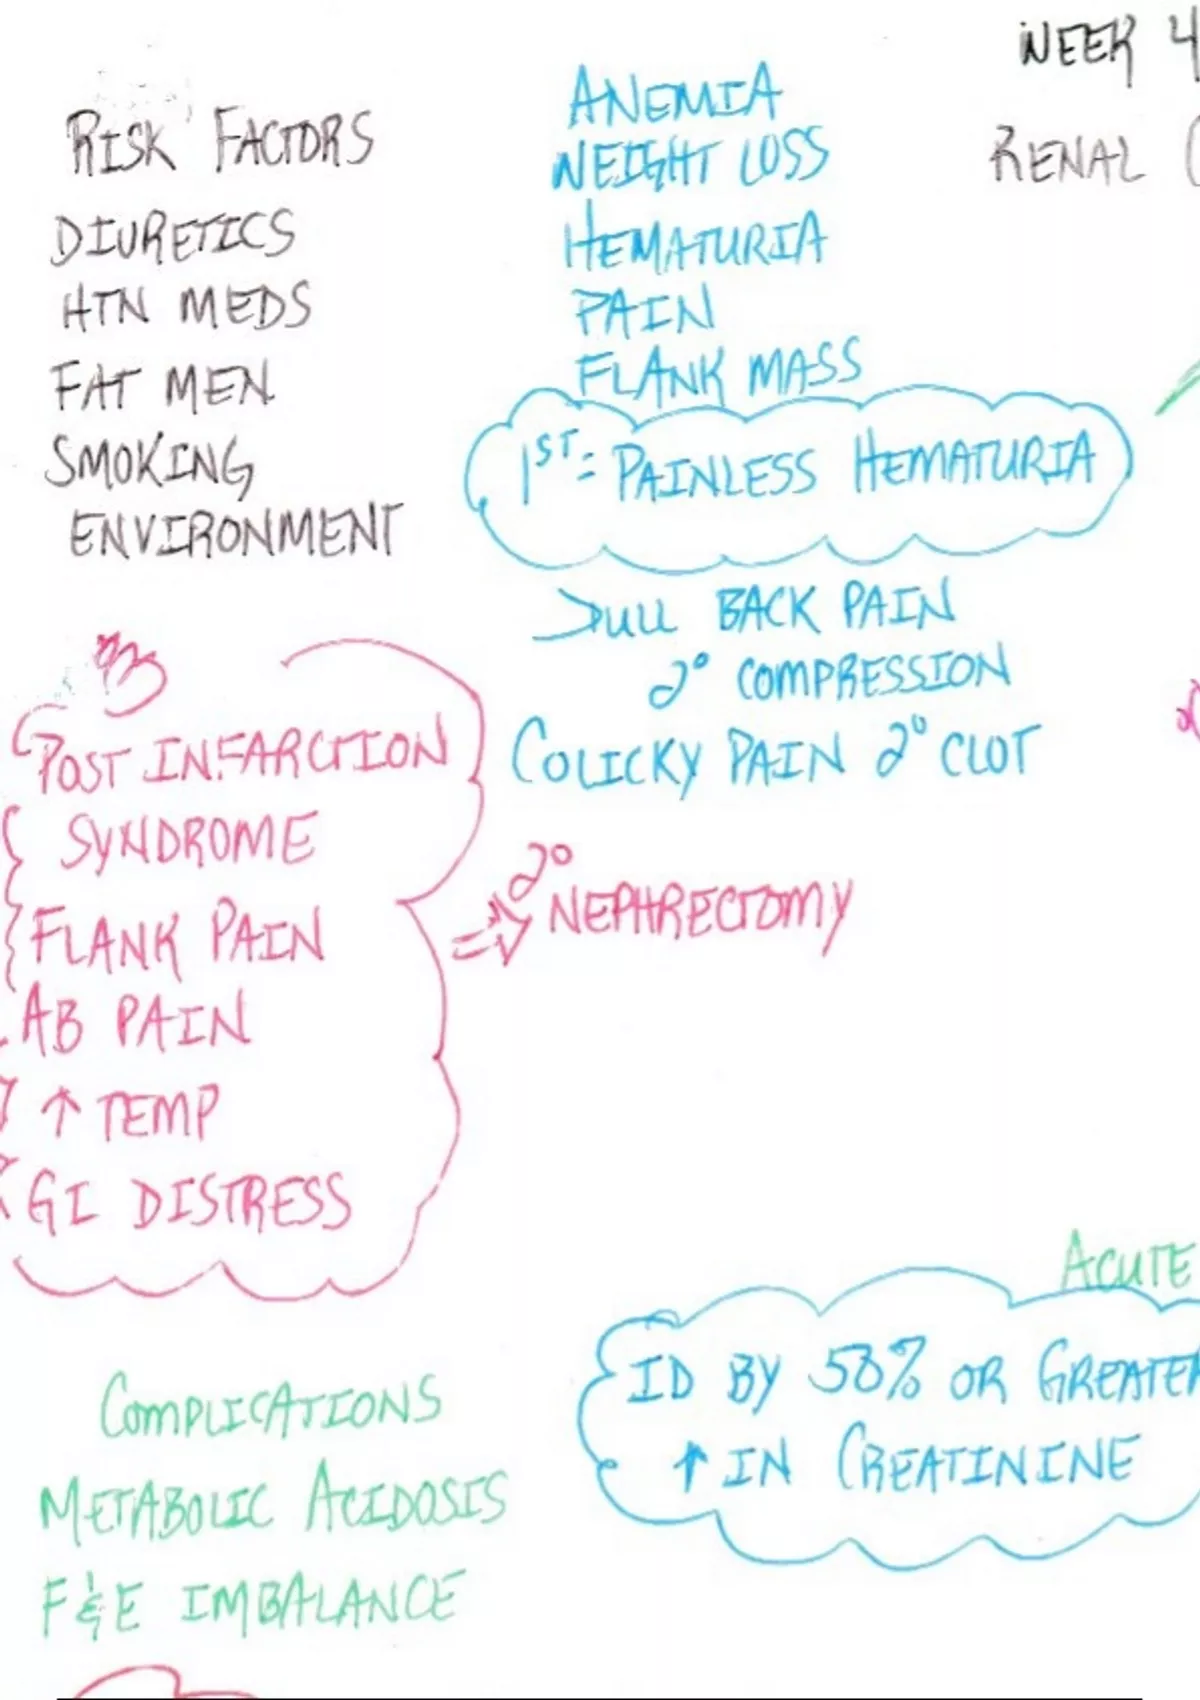 WEEK 4
RENAL (
RISK FACTORS
DIURETICS
HTN MEDS
FAT MEN
SMOKING
ENVIRONMENT
ANEMIA
WEIGHT LOSS
HEMATURIA
PAIN
FLANK MASS
1ST = PAINLESS HEMATURIA
DULL BACK PAIN
2° COMPRESSION
COLICKY PAIN 2° CLOT
POST INFARCTION
SYNDROME
FLANK PAIN
AB PAIN
↑ TEMP
GI DISTRESS
⇒ 2°
NEPHRECTOMY
ACUTE
ID BY 50% OR GREATER
↑ IN CREATININE
COMPLICATIONS
METABOLIC ACIDOSIS
F & E IMBALANCE